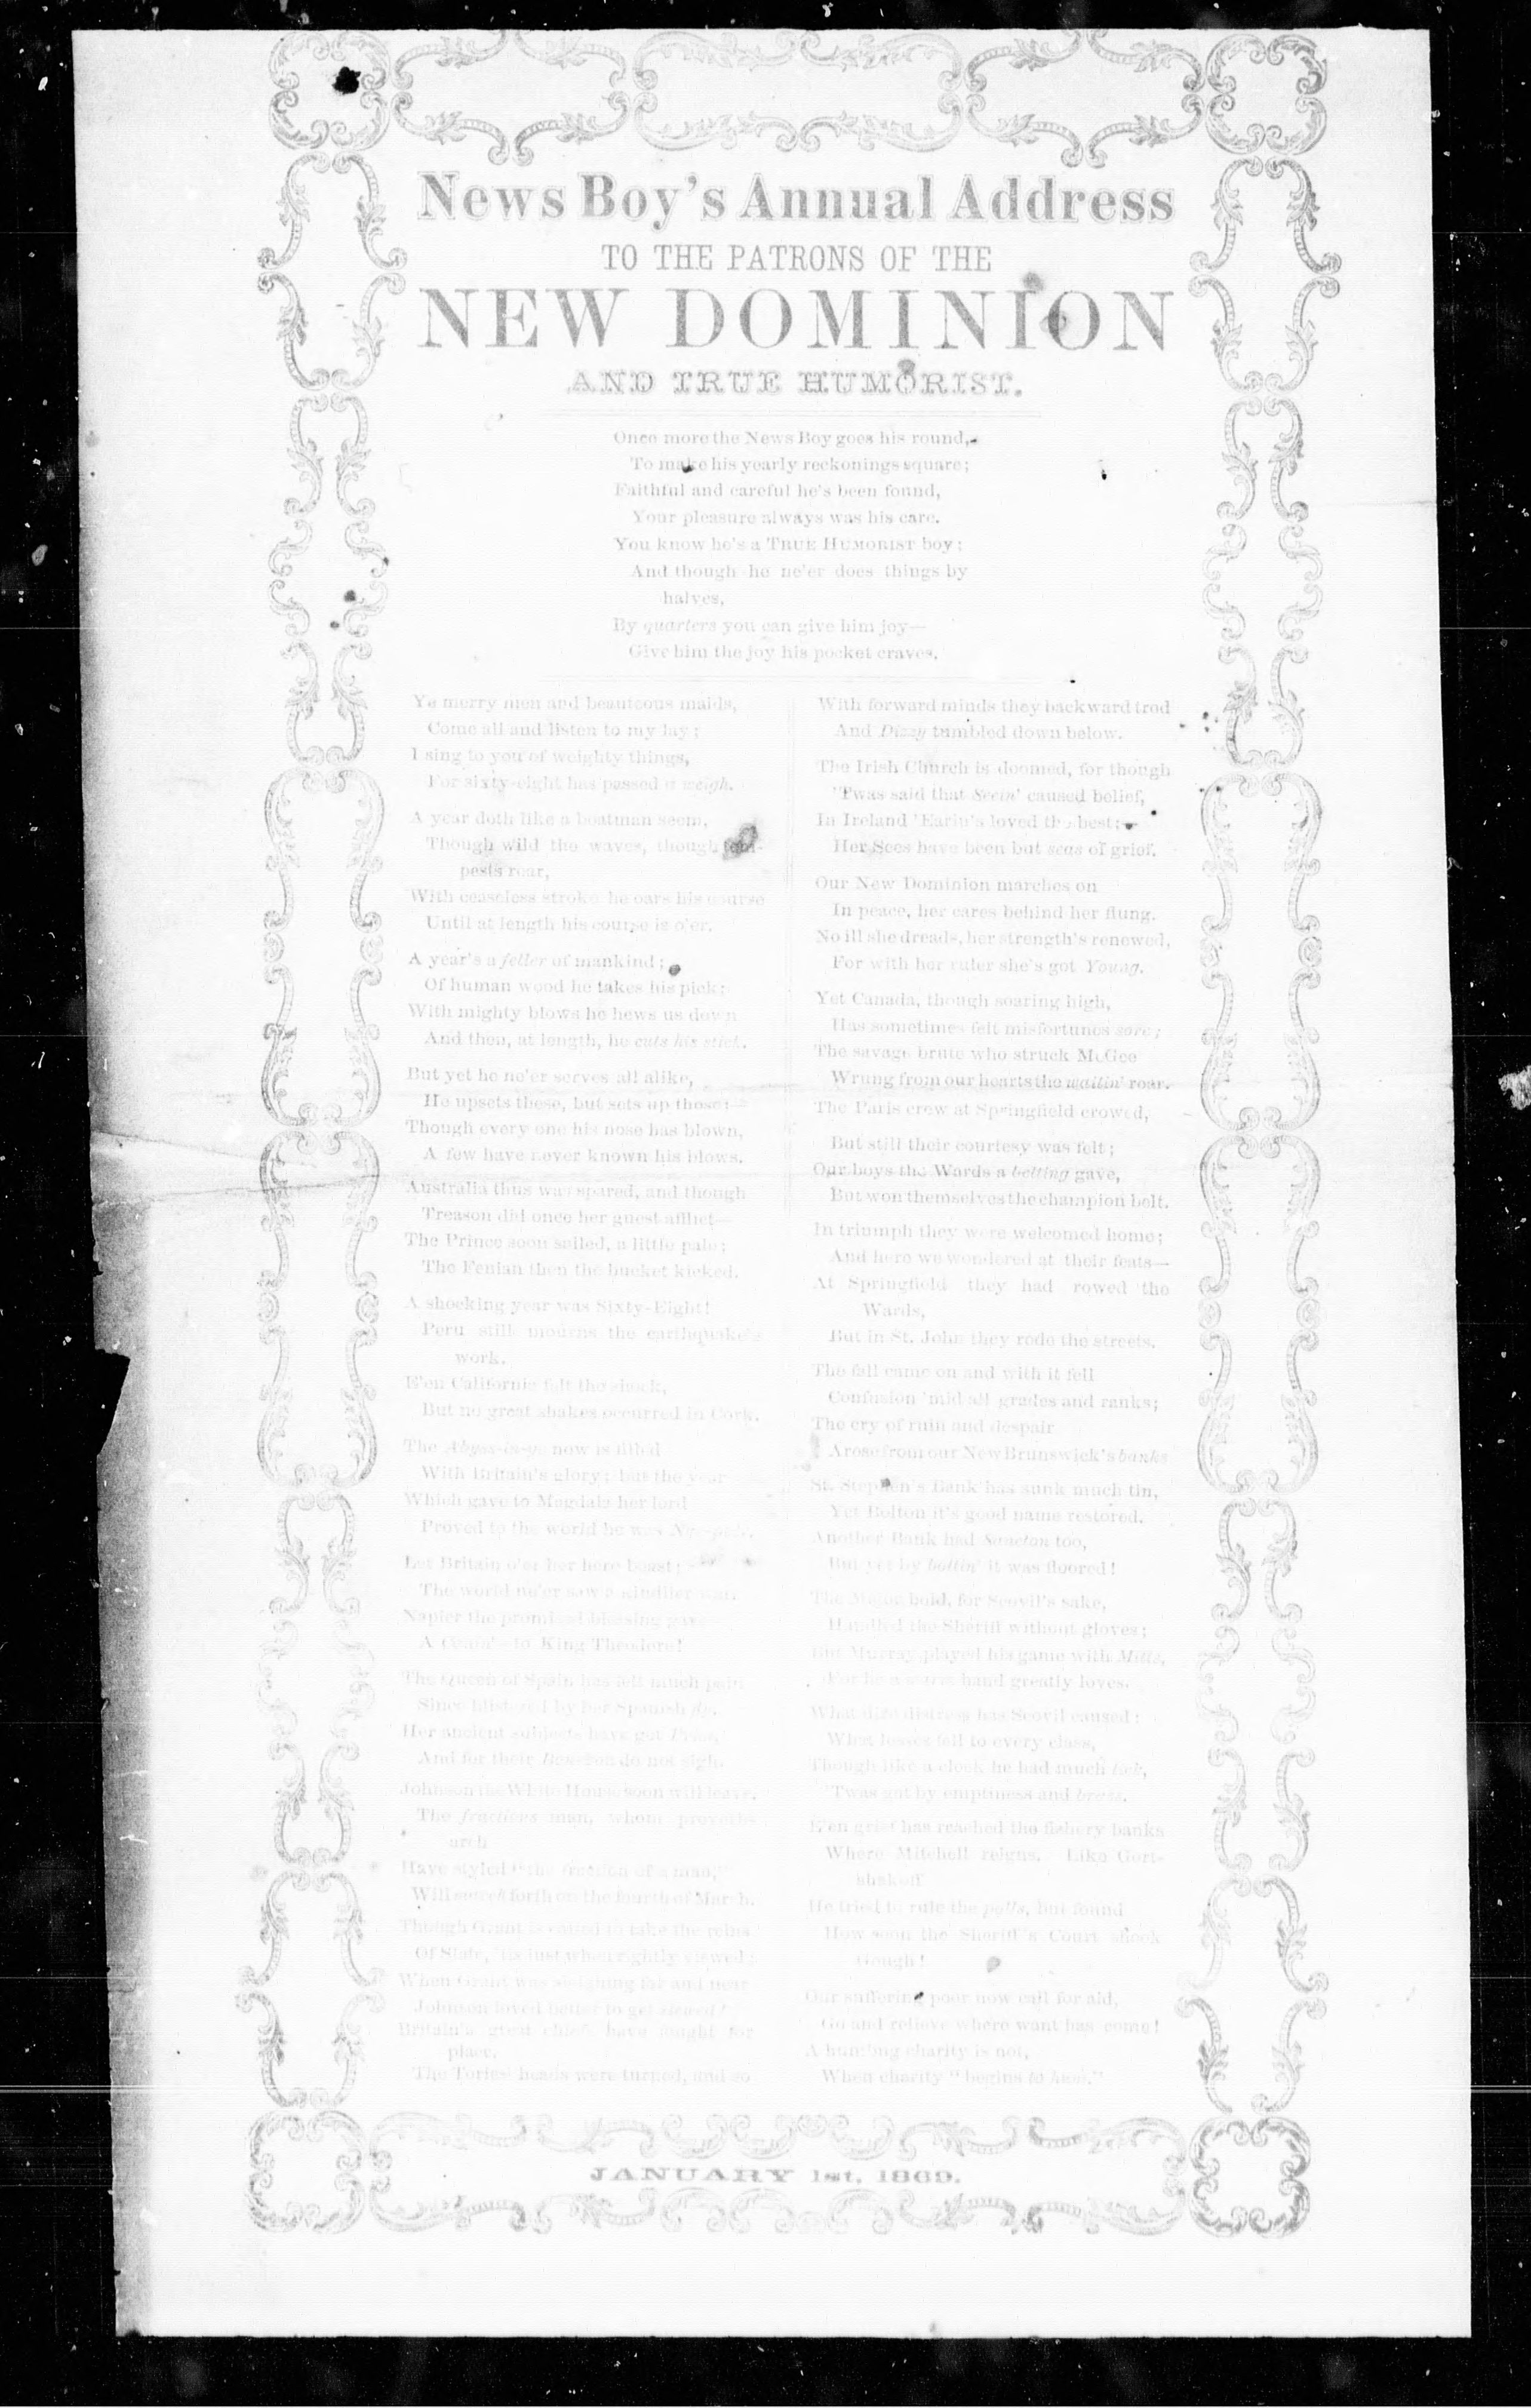 News Boy's Annual Address
TO THE PATRONS OF THE
NEW DOMINION
AND TRUE HUMORIST.
Once more the News Boy goes his round,
To make his yearly reckonings square;
Faithful and careful he's been found,
Your pleasure always was his care.
You know he's a TRUE HUMORIST boy;
And though he ne'er does things by
halves,
By quarters you can give him joy—
Give him the joy his pocket craves.
Ye merry men and beauteous maids,
Come all and listen to my lay;
I sing to you of weighty things,
For sixty-eight has passed a weigh.
A year doth like a boatman seem,
Though wild the waves, though tem-
pests roar,
With ceaseless stroke he oars his course
Until at length his course is o'er.
A year's a feller of mankind;
Of human wood he takes his pick;
With mighty blows he hews us down
And then, at length, he cuts his stick.
But yet he ne'er serves all alike,
He upsets these, but sets up those:—
Though every one his nose has blown,
A few have never known his blows.
Australia thus was spared, and though
Treason did once her guest afflict—
The Prince soon sailed, a little pale;
The Fenian then the bucket kicked.
A shocking year was Sixty-Eight!
Peru still mourns the earthquake's
work.
E'en California felt the shock,
But no great shakes occurred in Cork.
The Abyss-in-ye now is filled
With Britain's glory; but the year
Which gave to Magdala her lord
Proved to the world he was
Let Britain o'er her hero boast;
The world ne'er saw a kindlier
Napier the promised blessing gave—
A to King Theodore!
The Queen of Spain has felt much pain
Since blistered by her Spanish fly.
Her ancient subjects have got
And for their Bourbon do not sigh.
Johnson the White House soon will leave,
The fractious man, whom proverbs
arch
Have styled "the fraction of a man,"
Will forth on the fourth of March.
Though Grant is raised to take the reins
Of State, 'tis just when rightly viewed;
When Grant was sleighing far and near
Johnson loved better to get slewed!
Britain's great chiefs have fought for
place,
The Tories' heads were turned, and so
With forward minds they backward trod
And Dizzy tumbled down below.
The Irish Church is doomed, for though
'Twas said that Seein' caused belief,
In Ireland 'Earin's loved the best;—
Her Sees have been but seas of grief.
Our New Dominion marches on
In peace, her cares behind her flung.
No ill she dreads, her strength's renewed,
For with her ruler she's got Young.
Yet Canada, though soaring high,
Has sometimes felt misfortunes sore;
The savage brute who struck McGee
Wrung from our hearts the wailin' roar.
The Paris crew at Springfield crowed,
But still their courtesy was felt;
Our boys the Wards a belting gave,
But won themselves the champion belt.
In triumph they were welcomed home;
And here we wondered at their feats—
At Springfield they had rowed the
Wards,
But in St. John they rode the streets.
The fall came on and with it fell
Confusion 'mid all grades and ranks;
The cry of ruin and despair
Arose from our New Brunswick's banks
St. Stephen's Bank has sunk much tin,
Yet Bolton it's good name restored.
Another Bank had Sancton too,
But yet by boltin' it was floored!
The Major bold, for Scovil's sake,
Handled the Sheriff without gloves;
But Murray played his game with Mitts,
For he a warm hand greatly loves.
What dire distress has Scovil caused;
What losses fell to every class,
Though like a clock he had much tick,
'Twas got by emptiness and brass.
E'en grief has reached the fishery banks
Where Mitchell reigns. Like Gort-
shakoff
He tried to rule the polls, but found
How soon the Sheriff's Court shook
Gough!
Our suffering poor now call for aid,
Go and relieve where want has come!
A humbug charity is not,
When charity "begins to hum."
JANUARY 1st, 1869.